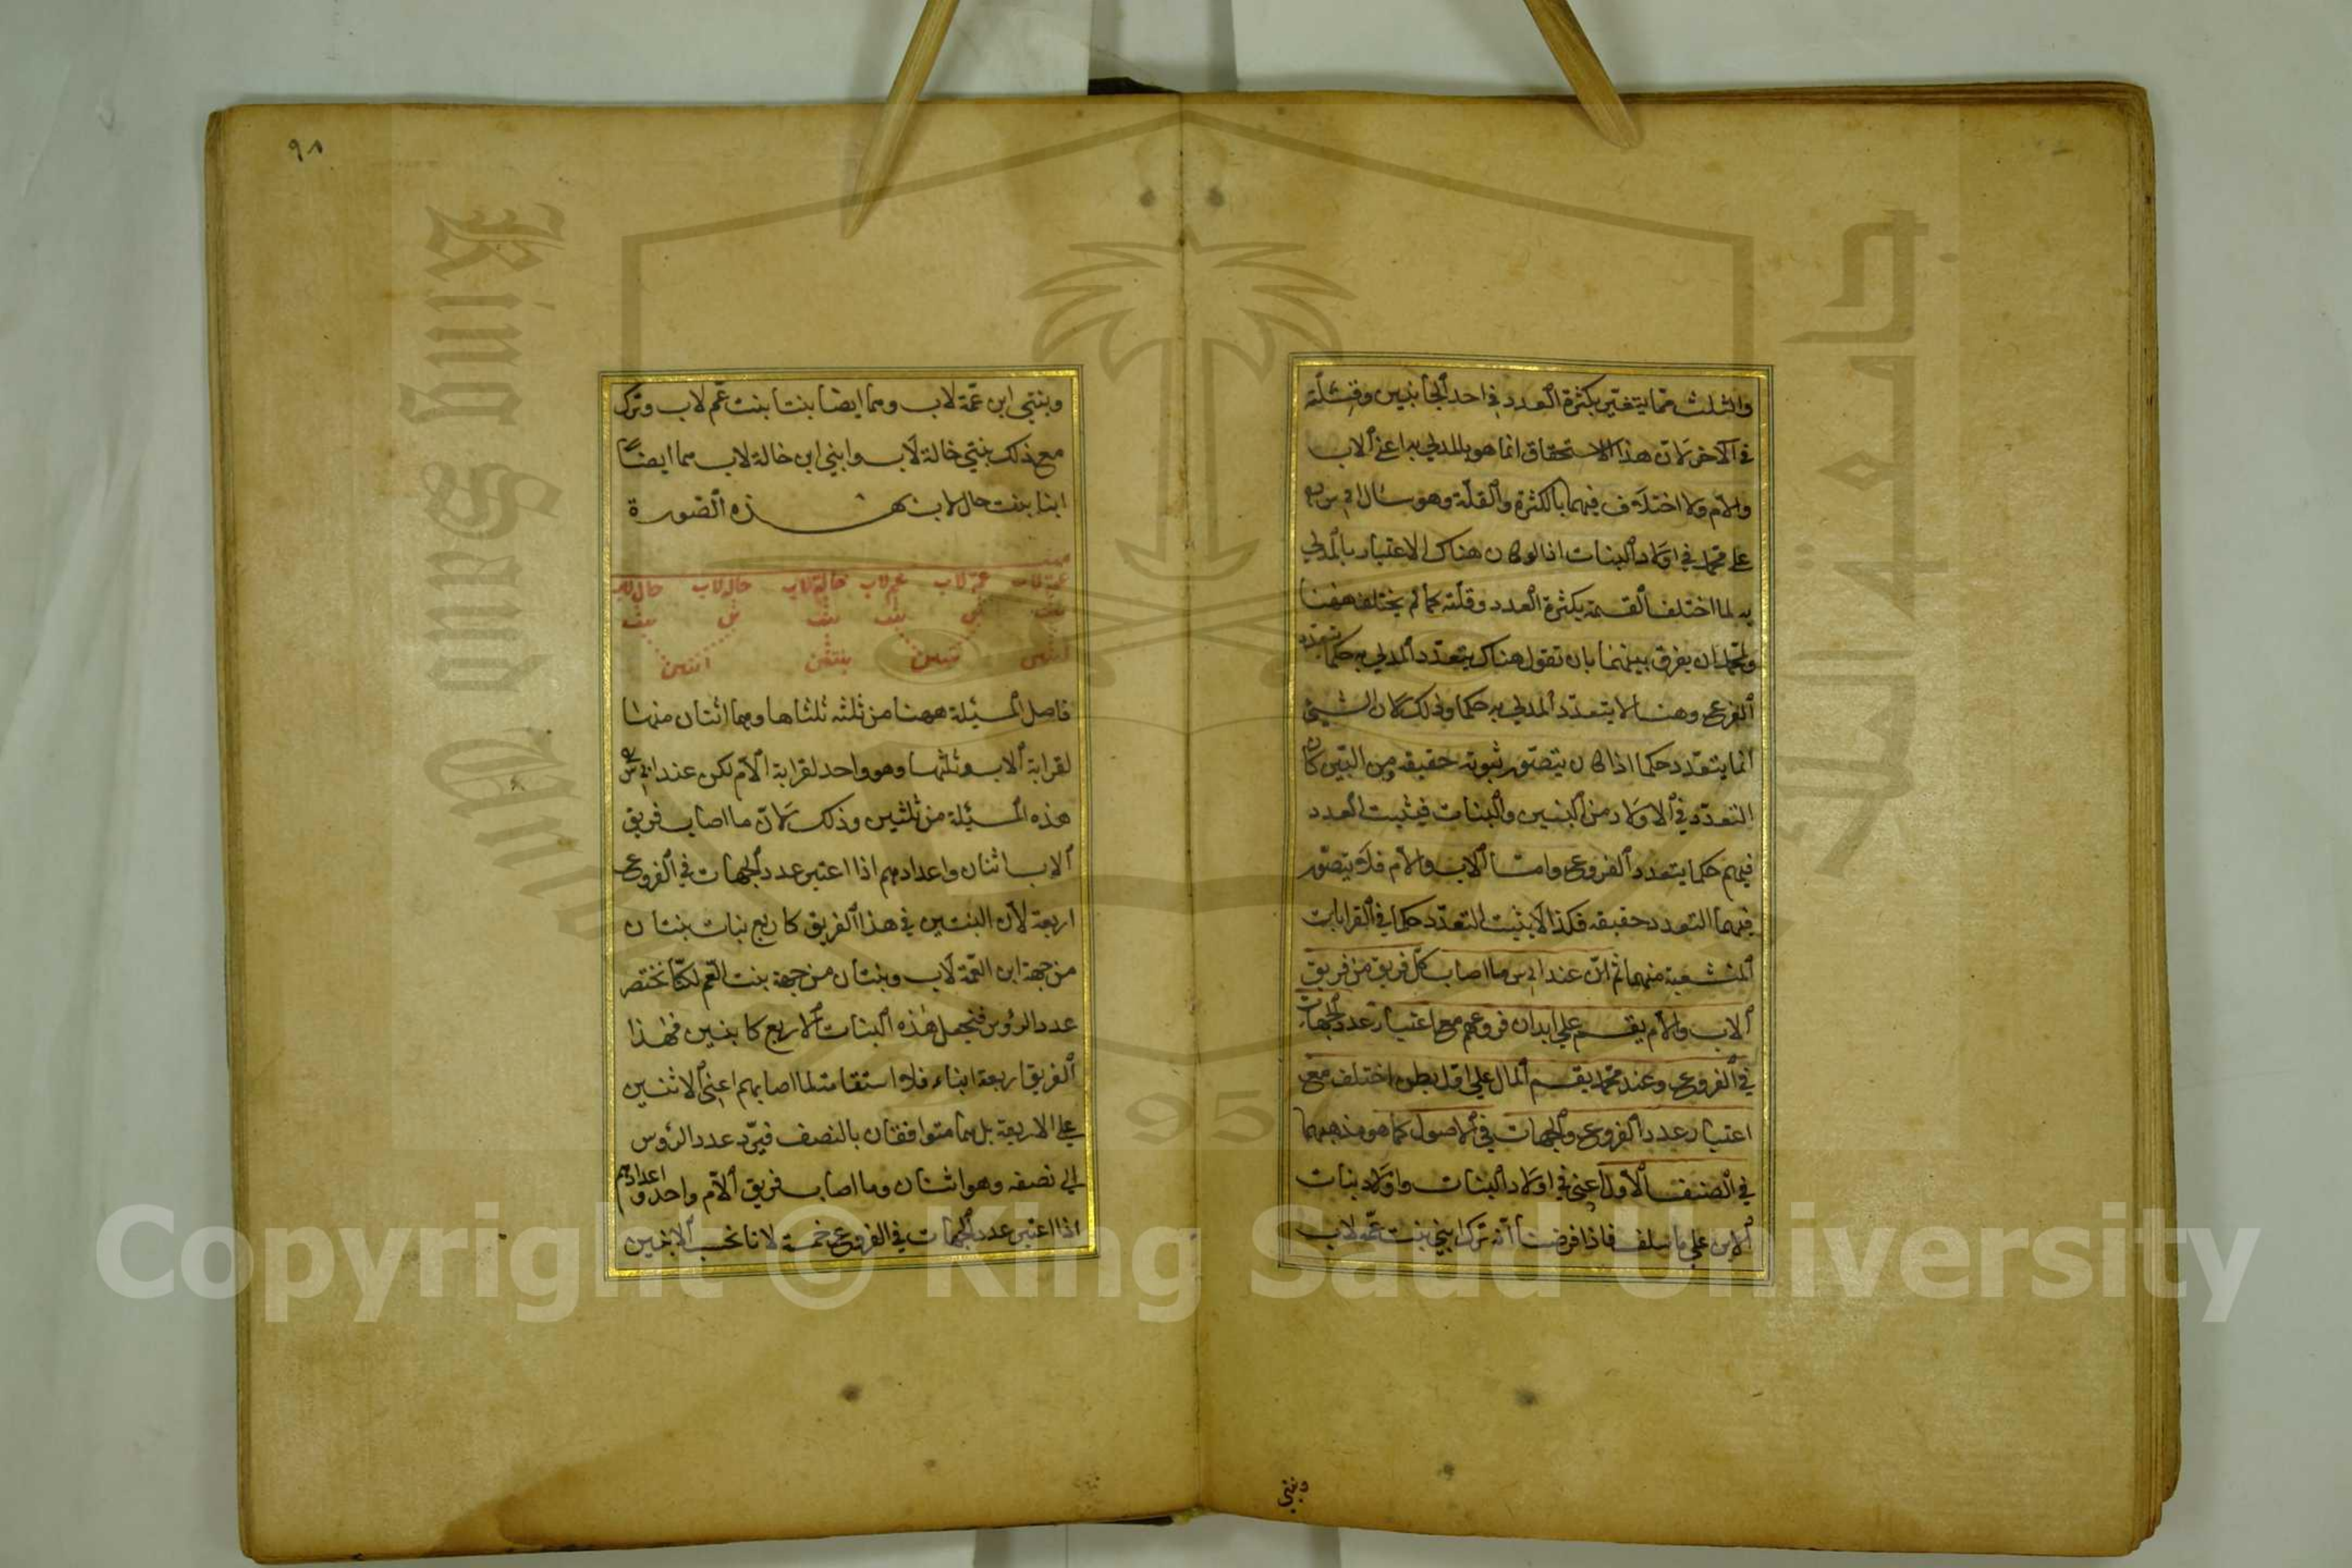 والثلث مما يتغير بكثرة العدد في احد الجانبين وقلته
في الآخر لان هذا الاستحقاق انما هو بالمدلي به اعني الاب
والام ولا اختلاف فيهما بالكثرة والقلة وهو سئال ابي س
على محمد في اولاد البنات اذ لو كان هناك الاعتبار بالمدلي
به لما اختلف القسمة بكثرة العدد وقلته كما لم يختلف ههنا
ولمحمد ان يفرق بينهما بان تقول هناك يتعدد المدلي به حكما بتعدد
الفرع وهنا لا يتعدد المدلي به حكما وذلك لان الشيئ
انما يتعدد حكما اذا كان يتصور ثبوته حقيقه ومن البين ان
التعدد في الاولاد من البنين والبنات فيثبت العدد
فيهم حكما بتعدد الفروع وامتا الاب والام فلا يتصور
فيهما التعدد حقيقه فكذا لا يثبت التعدد حكما في القرابات
المنشعبة منهما ثم ان عند ابي س ما اصاب كل فريق من فريق
الاب والام يقسم على ابدان فروعهم مع اعتبار عدد الجهات
في الفروع وعند محمد يقسم المال على اول بطن اختلف مع
اعتبار عدد الفروع والجهات في الاصول كما هو مذهبهما
في الصنف الاول اعني في اولاد البنات واولاد بنات
الابن على ما سلف فاذا فرضنا انه ترك ابني بنت عمة لاب
وبنتي
٩٨
وبنتي ابن عمة لاب وهما ايضا بنتا بنت عم لاب وترك
مع ذلك بنتي خالة لاب وابني ابن خالة لاب هما ايضا
ابنا بنت خال لاب بهذه الصورة
ميت
عمة لاب عمة لاب عم لاب خالة لاب خالة لاب خال لاب
بنت ابن بنت بنت ابن بنت
ابنين بنتين بنتين ابنين
فاصل المسئلة ههنا من ثلثه ثلثاها وهما اثنان منها
لقرابة الاب وثلثها وهو واحد لقرابة الام لكن عند ابي س
هذه المسئلة من ثلثين وذلك لان ما اصاب فريق
الاب اثنان واعدادهم اذا اعتبر عدد الجهات في الفروع
اربعة لان البنتين في هذا الفريق كاربع بنات بنتان
من جهة ابن العمة لاب وبنتان من جهة بنت العم لكنا نختصر
عدد الرؤس فنجعل هذه البنات الاربع كابنين فهذا
الفريق اربعة ابناء فلا استقامة لما اصابهم اعني الاثنين
على الاربعة بل هما متوافقان بالنصف فيرد عدد الرؤس
الي نصفه وهو اثنان وما اصاب فريق الام واحد واعدادهم
اذا اعتبر عدد الجهات في الفروع خمسة لانا نحسب الابنين
Copyright © King Saud University